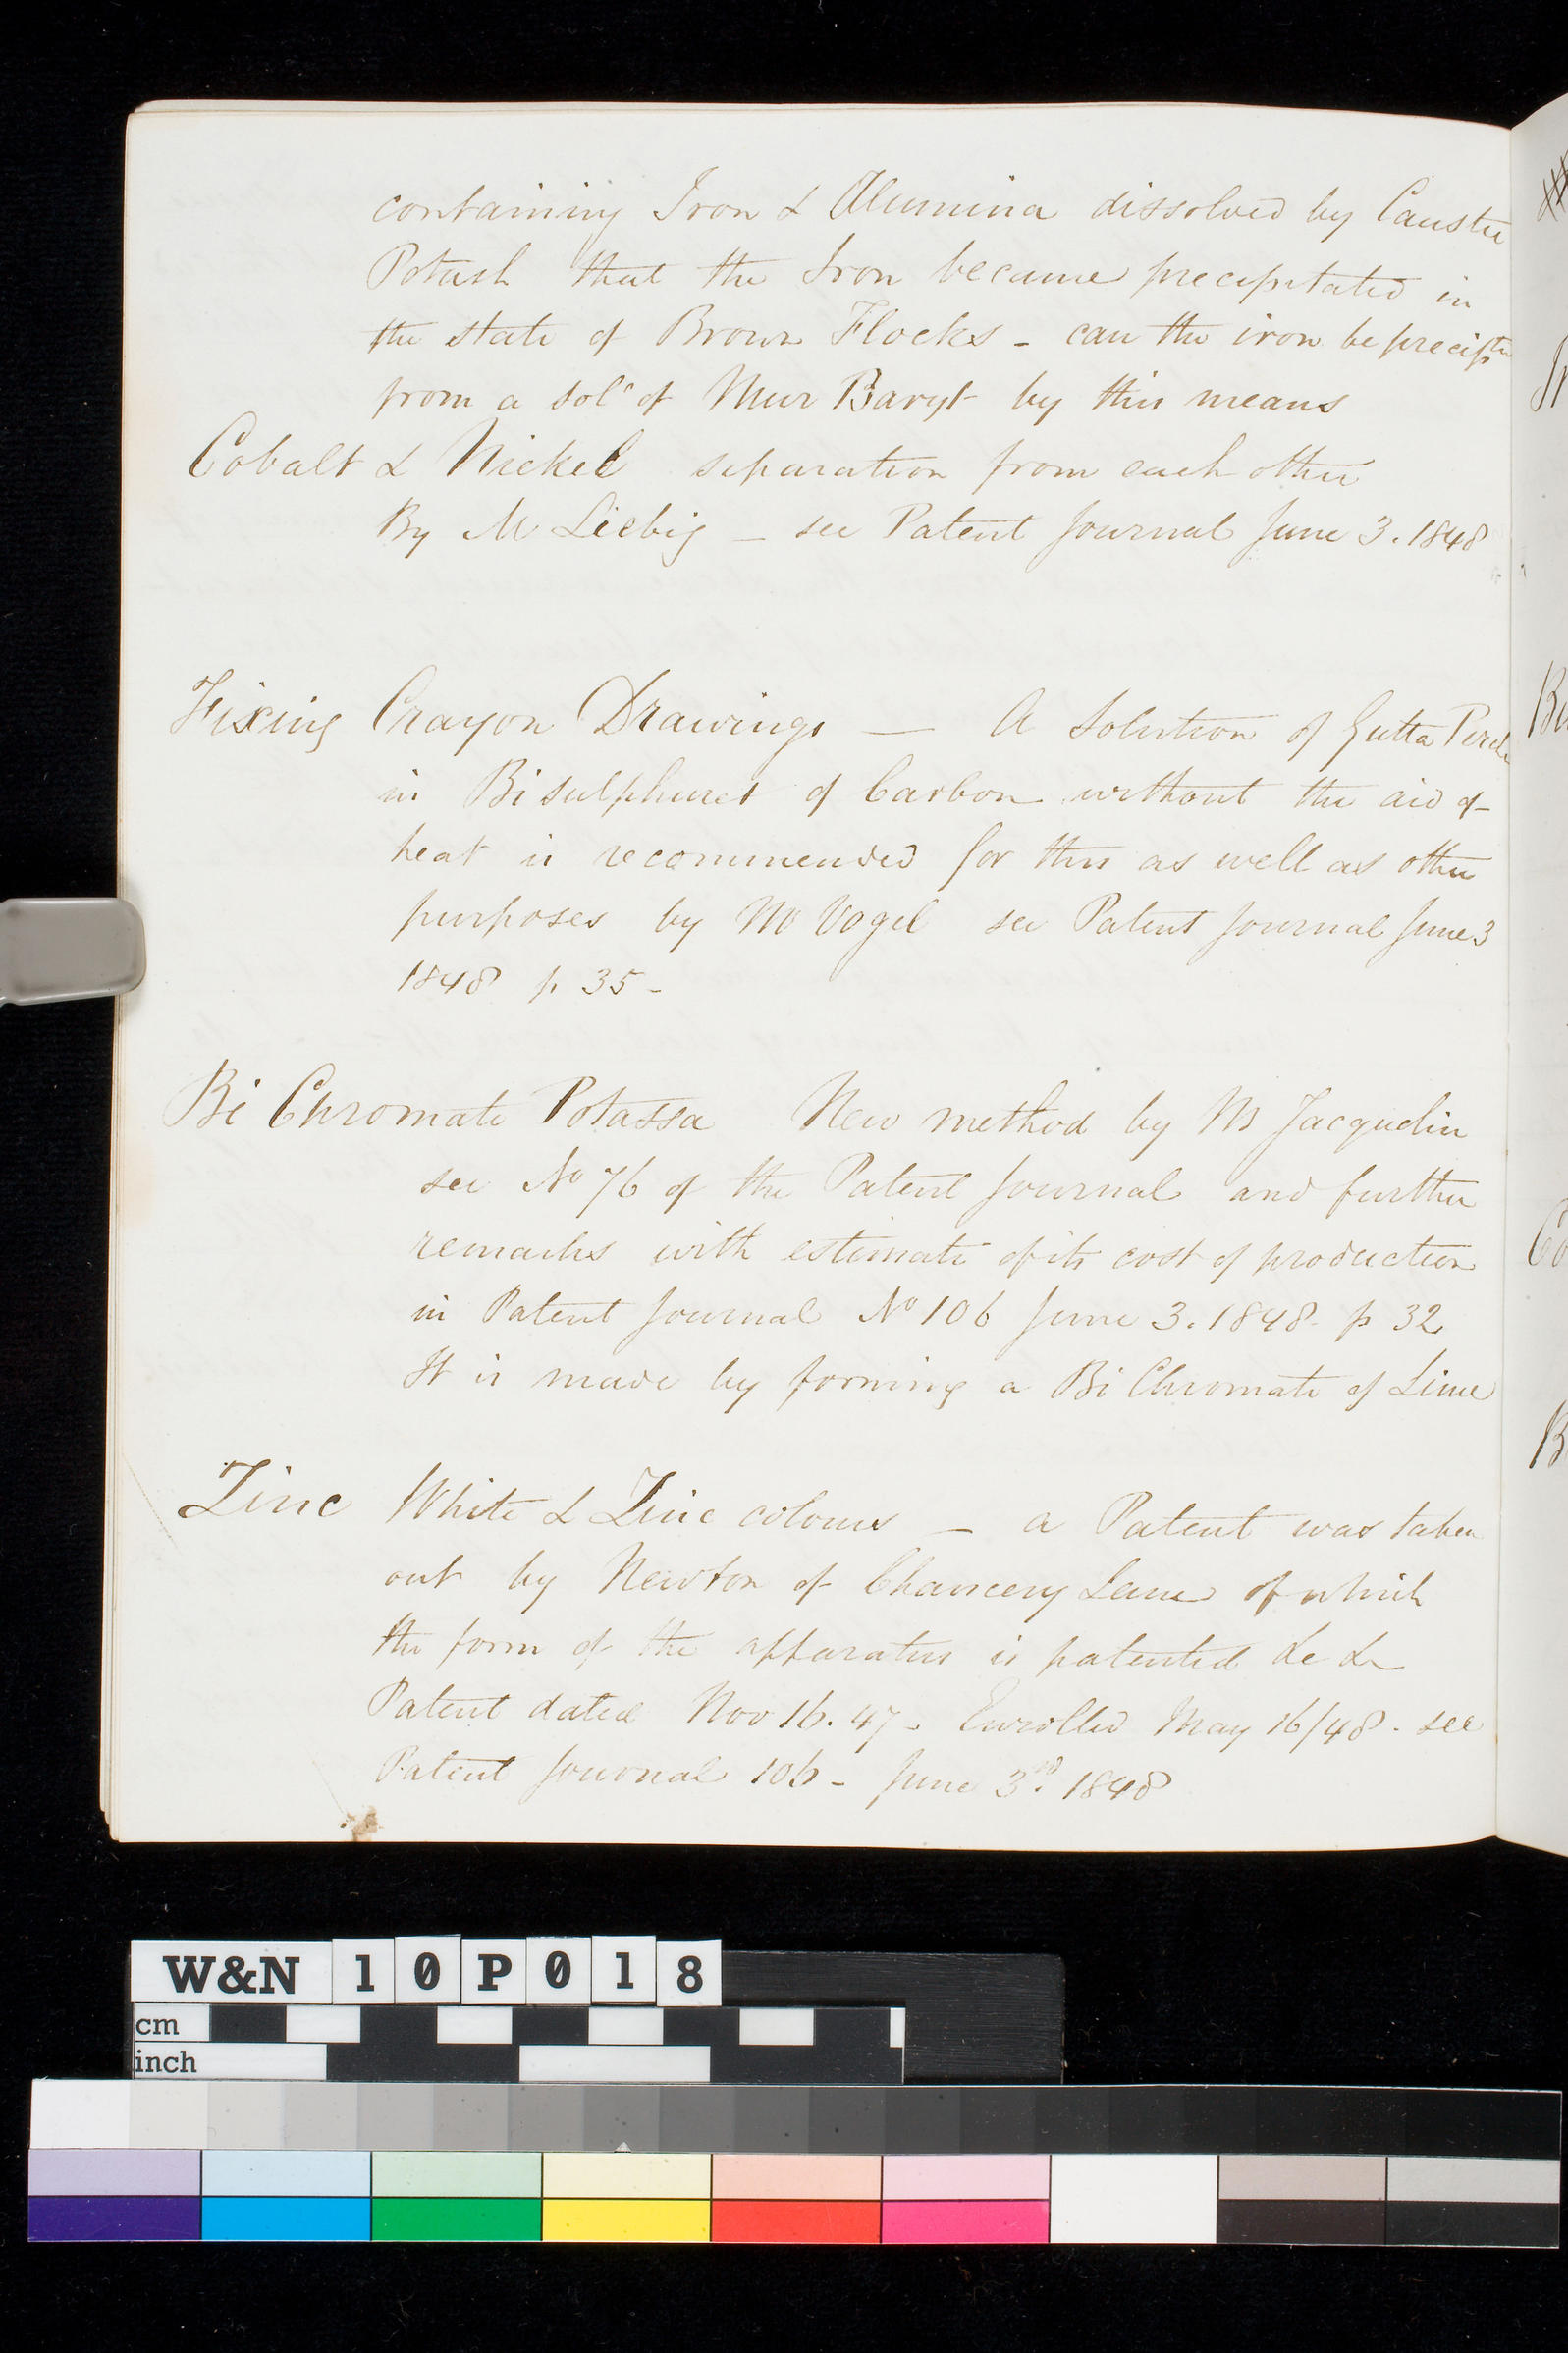 containing Iron & Alumina dissolved by Caustic
Potash that the Iron became precipitated in
the state of Brown Flocks - can the iron be precipted
from a soln of Mur Baryt by this means
Cobalt & Nickel separation from each other
By M Liebig - see Patent Journal June 3. 1848
Fixing Crayon Drawings — A Solution of Gutta Percha
in Bi sulphuret of Carbon without the aid of
heat is recommended for this as well as other
purposes by M Vogel see Patent Journal June 3
1848 p 35 -
Bi Chromate Potassa New method by M Jacquelin
see No 76 of the Patent Journal and further
remarks with estimate of its cost of production
in Patent Journal No 106 June 3. 1848 - p 32
It is made by forming a Bi Chromate of Lime
Zinc White & Zinc colours - a Patent was taken
out by Newton of Chancery Lane of which
the form of the apparatus is patented &c &c
Patent dated Nov 16. 47 - Enrolled May 16/48 - see
Patent Journal 106 - June 3rd. 1848
W&N 10P018
cm
inch